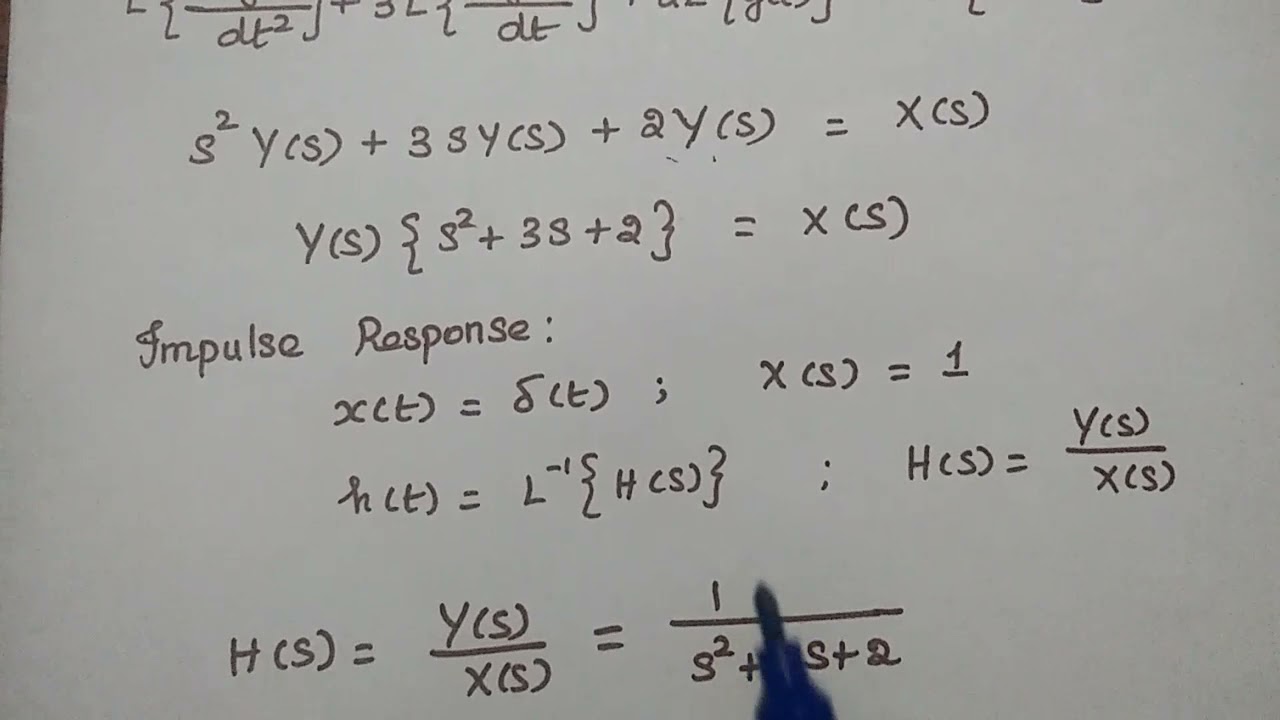 dt² + 3L { dt
s² Y(s) + 3sY(s) + 2Y(s) = X(s)
Y(s) {s² + 3s + 2} = X(s)
Impulse Response:
x(t) = δ(t) ; X(s) = 1
h(t) = L⁻¹{H(s)} ; H(s) = Y(s)/X(s)
H(s) = Y(s)/X(s) = 1/s² + s + 2